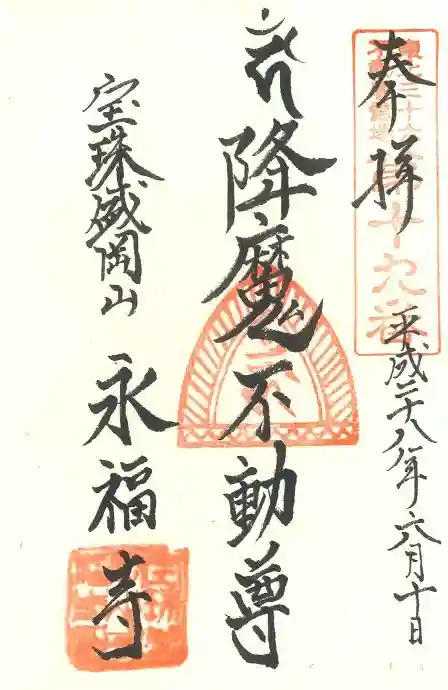 奉拝
第十九番
平成二十八年六月十日
降魔不動尊
宝珠盛岡山
永福寺